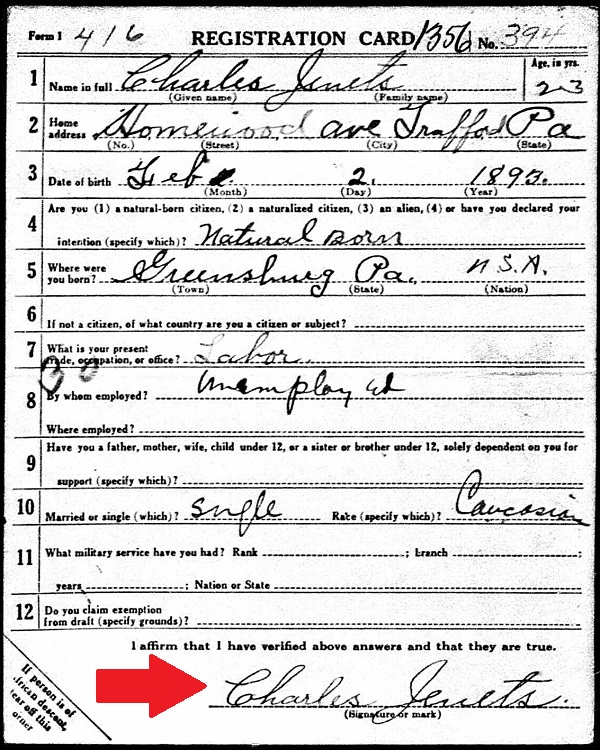 Form 1 416 REGISTRATION CARD 1356 No. 394
1 Name in full Charles Jenets Age, in yrs. 23
(Given name) (Family name)
2 Home address Homewood ave Trafford Pa
(No.) (Street) (City) (State)
3 Date of birth Feb 2. 1893.
(Month) (Day) (Year)
4 Are you (1) a natural-born citizen, (2) a naturalized citizen, (3) an alien, (4) or have you declared your
intention (specify which)? Natural Born
5 Where were you born? Greensburg Pa. U.S.A.
(Town) (State) (Nation)
6 If not a citizen, of what country are you a citizen or subject?
7 What is your present
trade, occupation, or office? Labor
8 By whom employed? Unemployed
Where employed?
9 Have you a father, mother, wife, child under 12, or a sister or brother under 12, solely dependent on you for
support (specify which)?
10 Married or single (which)? Single Race (specify which)? Caucasian
11 What military service have you had? Rank ; branch ;
years ; Nation or State
12 Do you claim exemption
from draft (specify grounds)?
I affirm that I have verified above answers and that they are true.
Charles Jenets.
(Signature or mark)
If person is of
African descent,
tear off this
corner